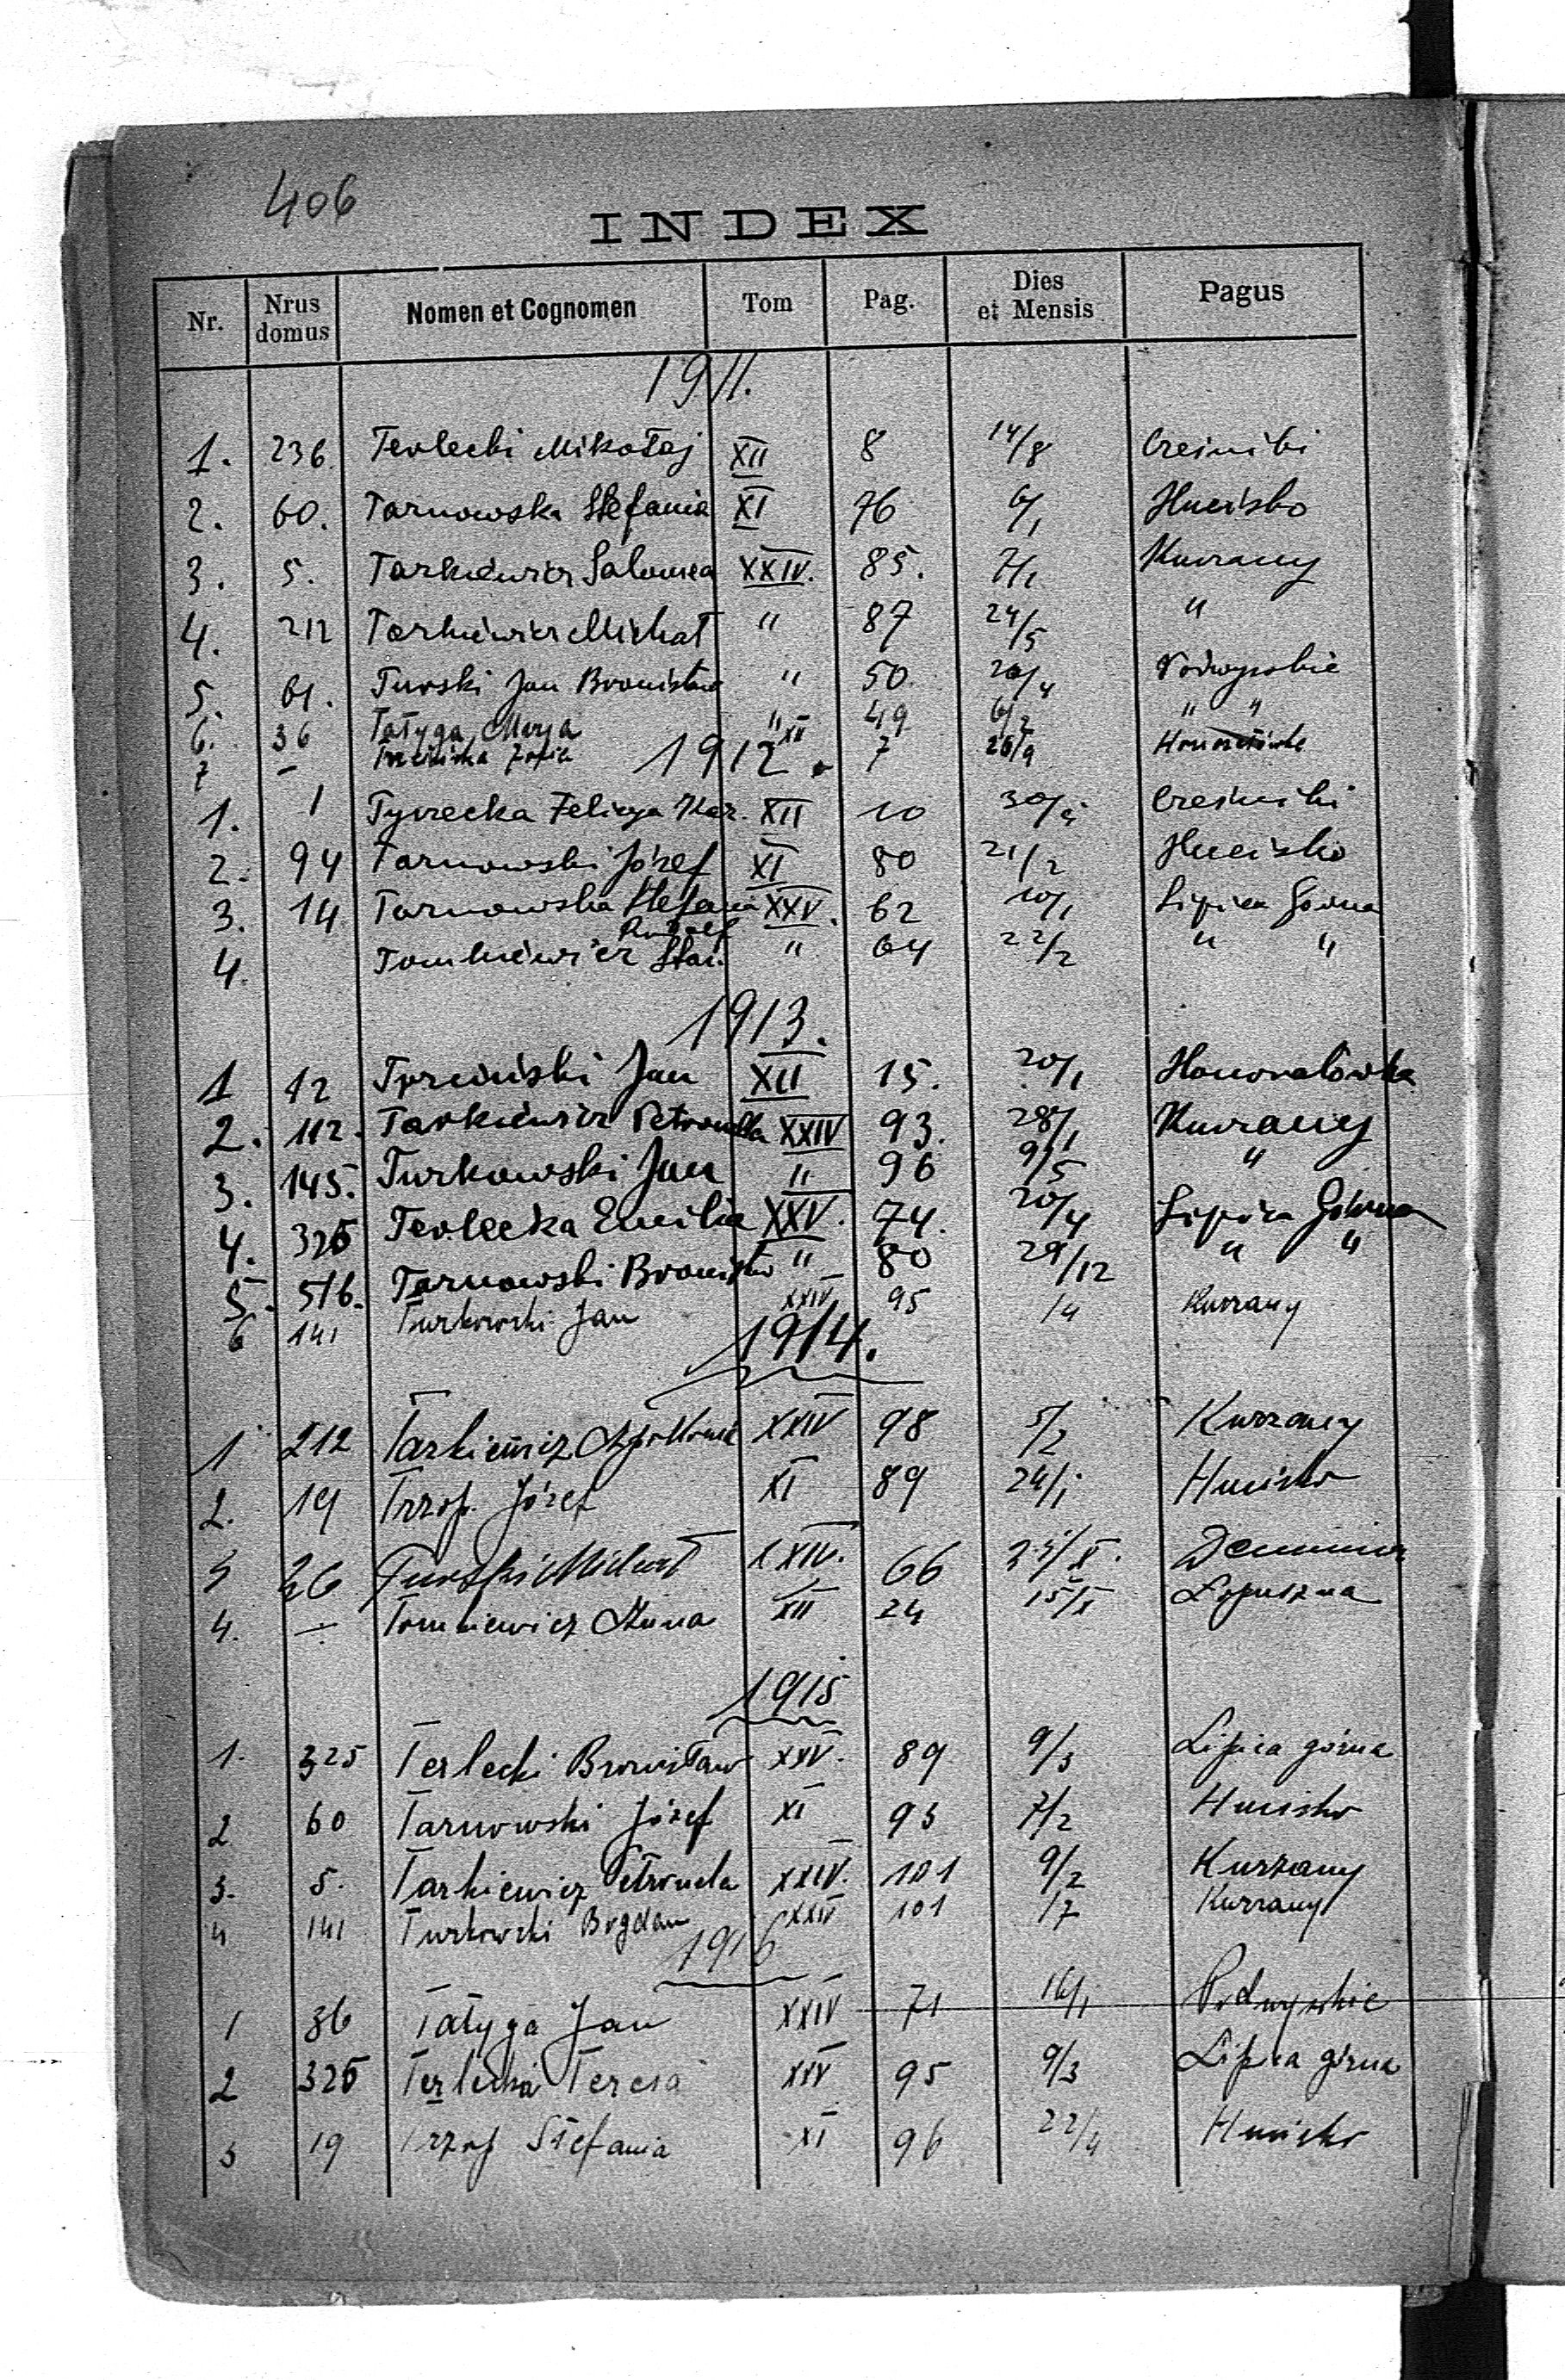 406
INDEX
Nr. Nrus domus Nomen et Cognomen Tom Pag. Dies et Mensis Pagus
1911.
1. 236. Terlecki Mikołaj XII 8 14/8
2. 60. Tarnowska Stefania XI 76 6/1 Hucisko
3. 5. Tarkiewicz Salomea XXIV. 85. 7/1 Kurzany
4. 212 Tarkiewicz Michał " 87 24/5 "
5. 61. Turski Jan Bronisław " 50. 20/4 Podwysokie
6. 36 Tatyga Marya " 49 6/2 " "
7 – Trzcińska Zofia XII 7 26/9
1912.
1. 1 Tyrrecka Felicya Kar. XII 10
2. 94 Tarnowski Józef XI 80 21/2 Hucisko
3. 14 Tarnowska Stefania XXV. 62 10/1 Lipica Górna
4. Tomkiewicz Stan. Rudolf " 64 22/2 " "
1913.
1 12 Jan XII 15. 20/1 Honoratówka
2. 112. Tarkiewicz Petronella XXIV 93. 28/1 Kurzany
3. 145. Turkowski Jan " 96 9/5 "
4. 325 Terlecka Emilia XXV. 74. 20/4 Lipica Górna
5. 516. Tarnowski Bronisław " 80 29/12 " "
6 141 Turkowski Jan XXIV 95 /4 Kurzany
1914.
1 212 Tarkiewicz Apollonia XXIV 98 5/2 Kurzany
2. 19 Trzop Józef XI 89 24/1 Hucisko
3 26 Turski Michał XXIV. 66
4. – Tomkiewicz Anna XII 24 15/X Łopuszna
1915
1. 325 Terlecki Bronisław XXV. 89 9/3 Lipica górna
2 60 Tarnowski Józef XI 93 7/2 Hucisko
3. 5. Tarkiewicz Petronela XXIV. 101 9/2 Kurzany
4 141 Turkowski Bogdan XXIV 101 /7 Kurzany
1916
1 36 Tatyga Jan XXIV 71 16/1 Podwysokie
2 325 Terlecka Teresa XXV 95 9/3 Lipica górna
3 19 Trzop Stefania XI 96 22/4 Hucisko